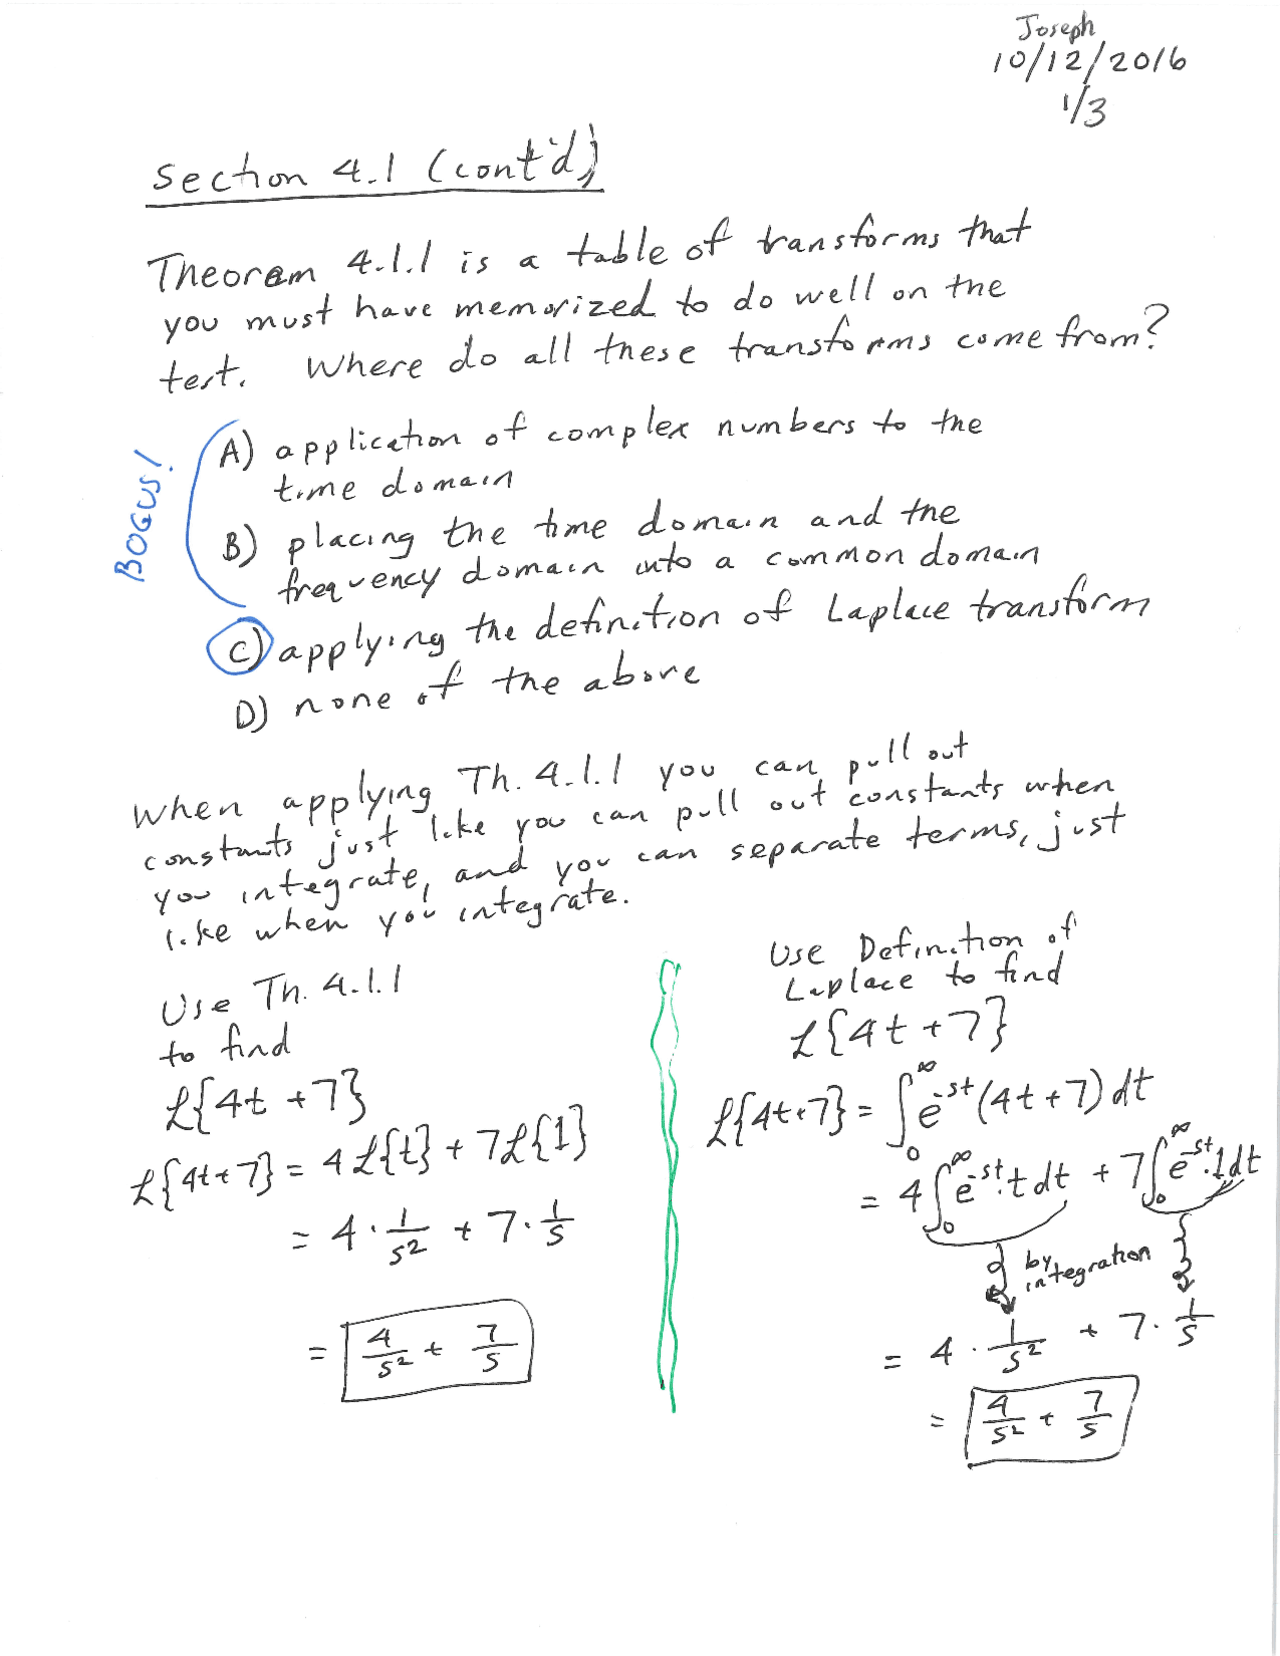 Joseph
10/12/2016
1/3
Section 4.1 (cont'd)
Theorem 4.1.1 is a table of transforms that
you must have memorized to do well on the
test. Where do all these transforms come from?
BOGUS!
A) application of complex numbers to the
time domain
B) placing the time domain and the
frequency domain into a common domain
C) applying the definition of Laplace transform
D) none of the above
When applying Th. 4.1.1 you can pull out
constants just like you can pull out constants when
you integrate, and you can separate terms, just
like when you integrate.
Use Th. 4.1.1
to find
ℒ{4t + 7}
ℒ{4t+7} = 4ℒ{t} + 7ℒ{1}
= 4 · 1/s² + 7 · 1/s
= 4/s² + 7/s
Use Definition of
Laplace to find
ℒ{4t + 7}
ℒ{4t+7} = ∫₀^∞ e^-st (4t + 7) dt
= 4 ∫₀^∞ e^-st · t dt + 7 ∫₀^∞ e^-st · 1 dt
by
integration
= 4 · 1/s² + 7 · 1/s
= 4/s² + 7/s